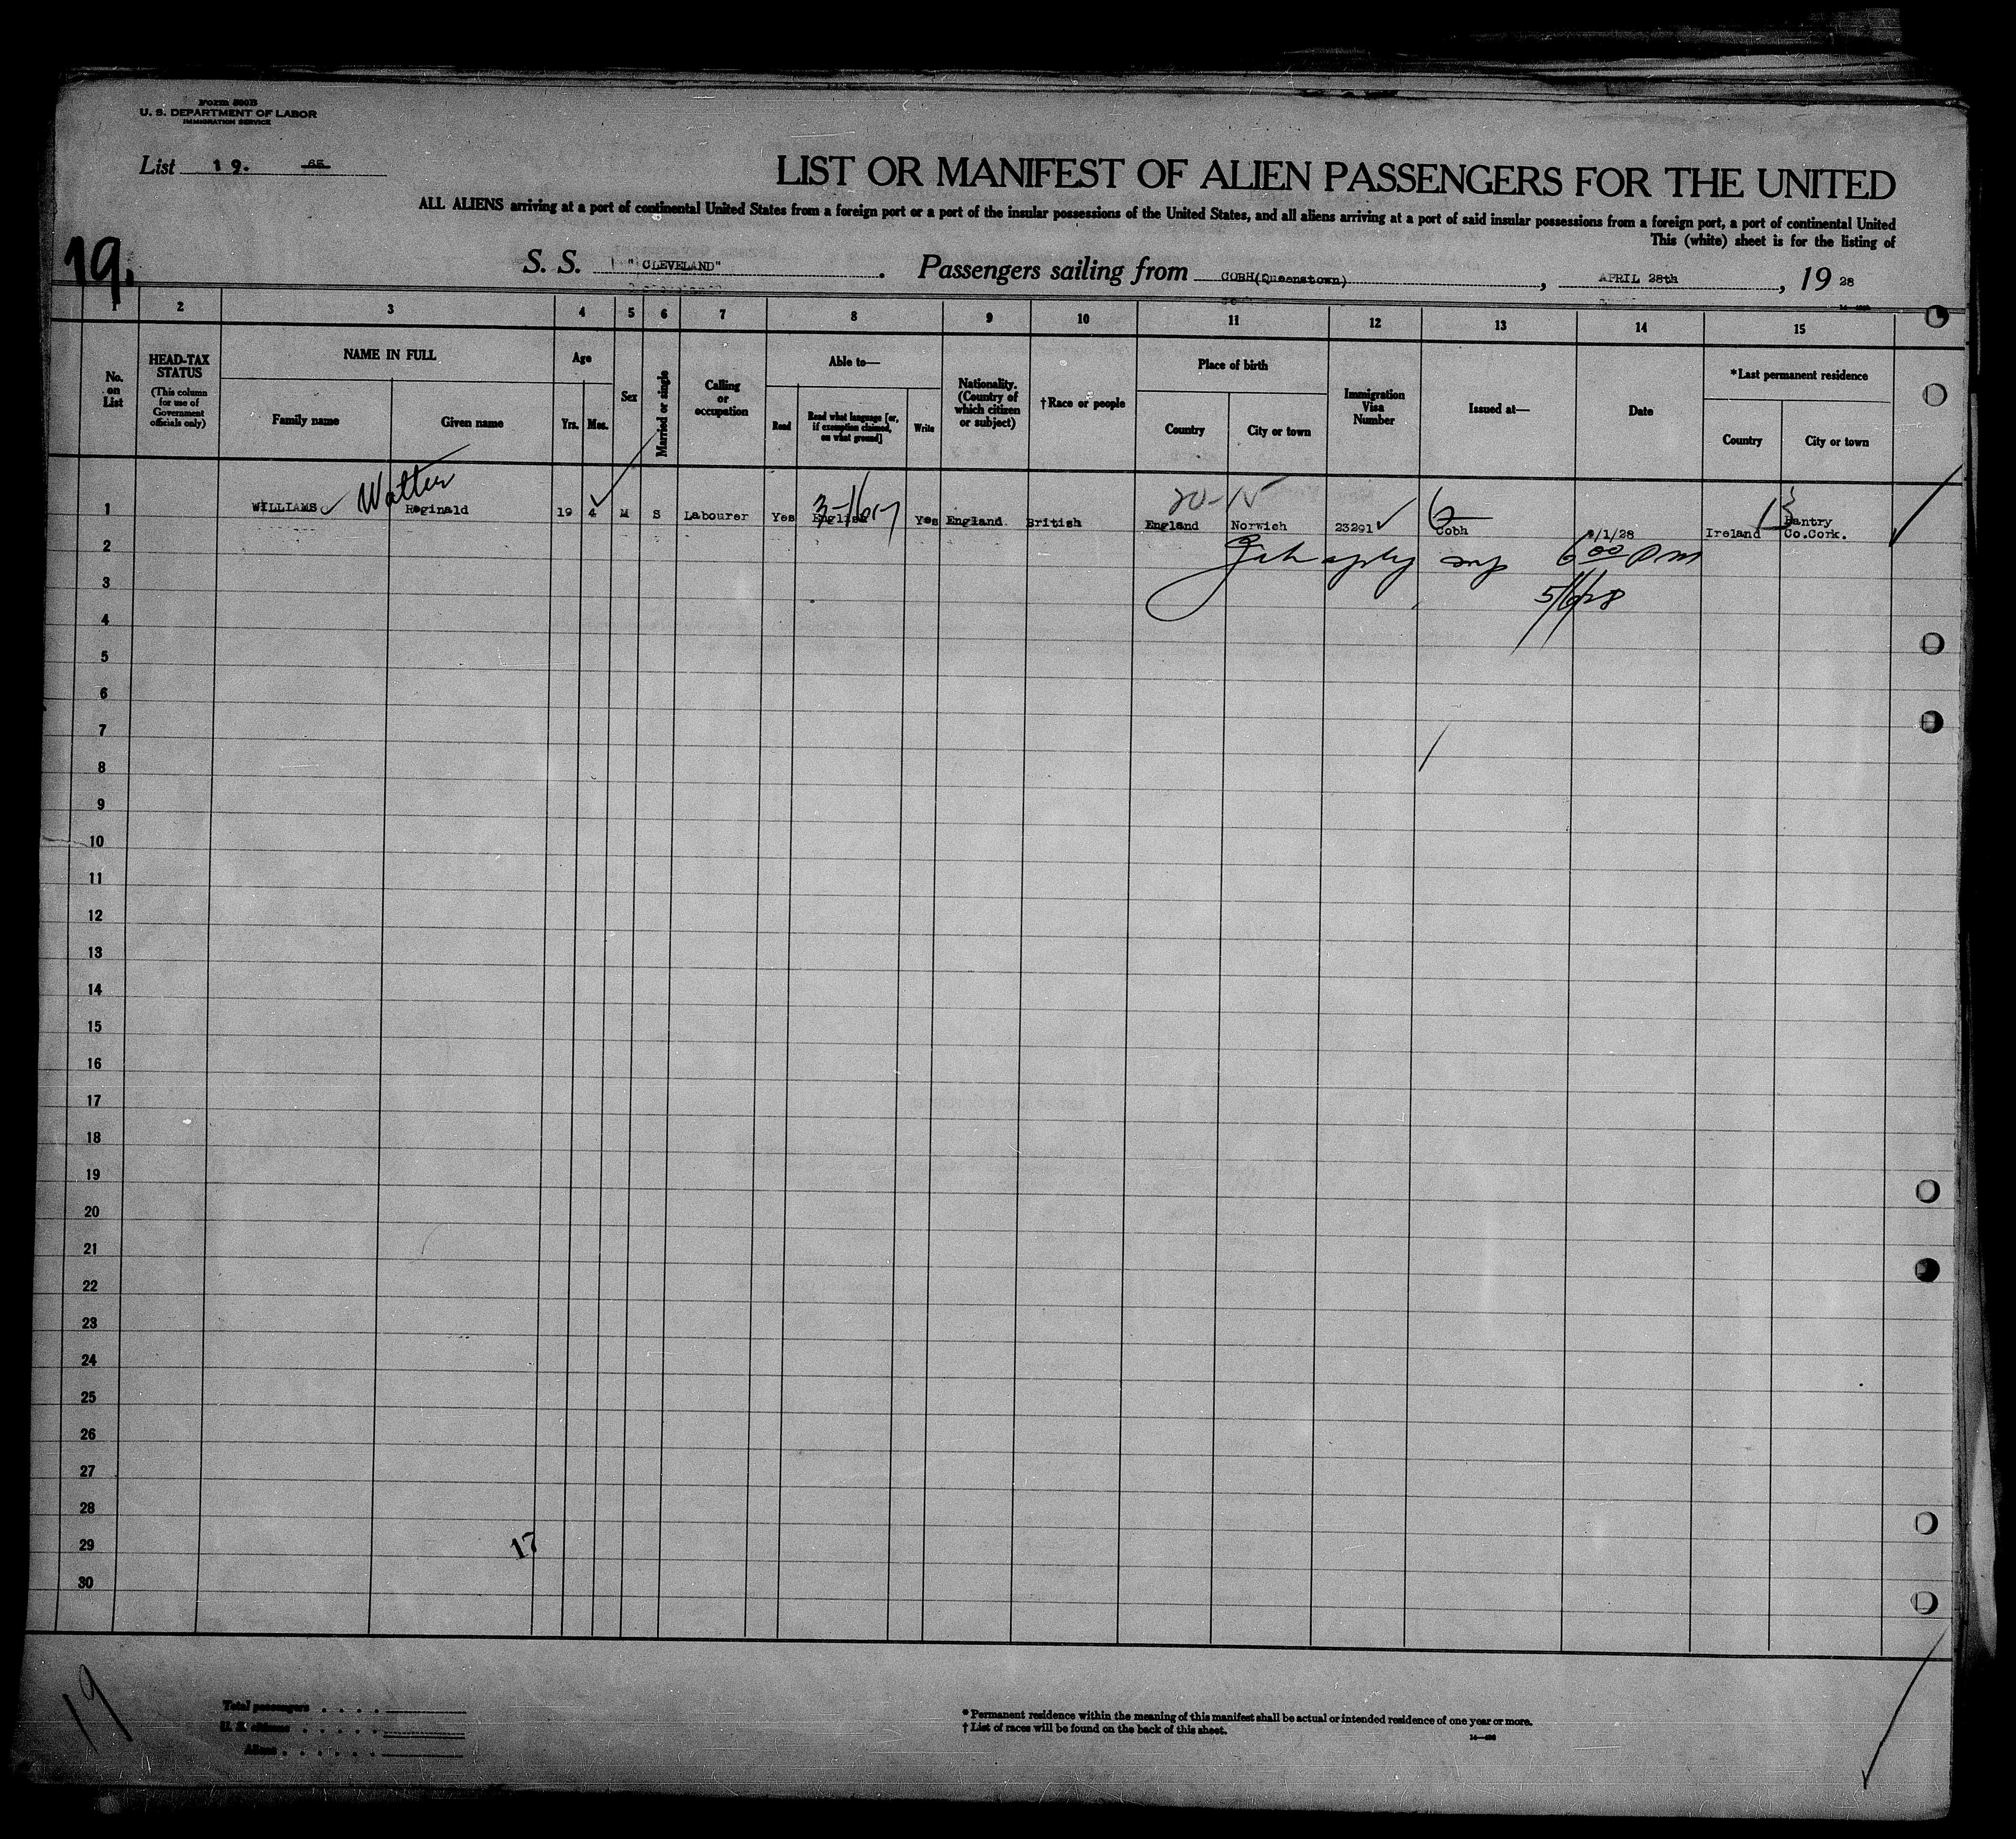 Form 500B
U. S. DEPARTMENT OF LABOR
IMMIGRATION SERVICE
List 19. 65
LIST OR MANIFEST OF ALIEN PASSENGERS FOR THE UNITED
ALL ALIENS arriving at a port of continental United States from a foreign port or a port of the insular possessions of the United States, and all aliens arriving at a port of said insular possessions from a foreign port, a port of continental United
This (white) sheet is for the listing of
19.
S. S. "CLEVELAND". Passengers sailing from COBH(Queenstown), APRIL 28th, 19 28
1 2 3 4 5 6 7 8 9 10 11 12 13 14 15
No. on List
HEAD-TAX STATUS (This column for use of Government officials only)
NAME IN FULL
Family name Given name
Age
Yrs. Mos.
Sex
Married or single
Calling or occupation
Able to—
Read
Read what language [or, if exemption claimed, on what ground]
Write
Nationality. (Country of which citizen or subject)
†Race or people
Place of birth
Country City or town
Immigration Visa Number
Issued at—
Date
*Last permanent residence
Country City or town
Walter 20-15
1 WILLIAMS Reginald 19 4 M S Labourer Yes English Yes England British England Norwich 23291 Cobh /1/28 Ireland Bantry Co.Cork.
2 6 00 pm
3 5/6/28
4
5
6
7
8
9
10
11
12
13
14
15
16
17
18
19
20
21
22
23
24
25
26
27
28
29 17
30
19
Total passengers
U. S. citizens
Aliens
* Permanent residence within the meaning of this manifest shall be actual or intended residence of one year or more.
† List of races will be found on the back of this sheet.